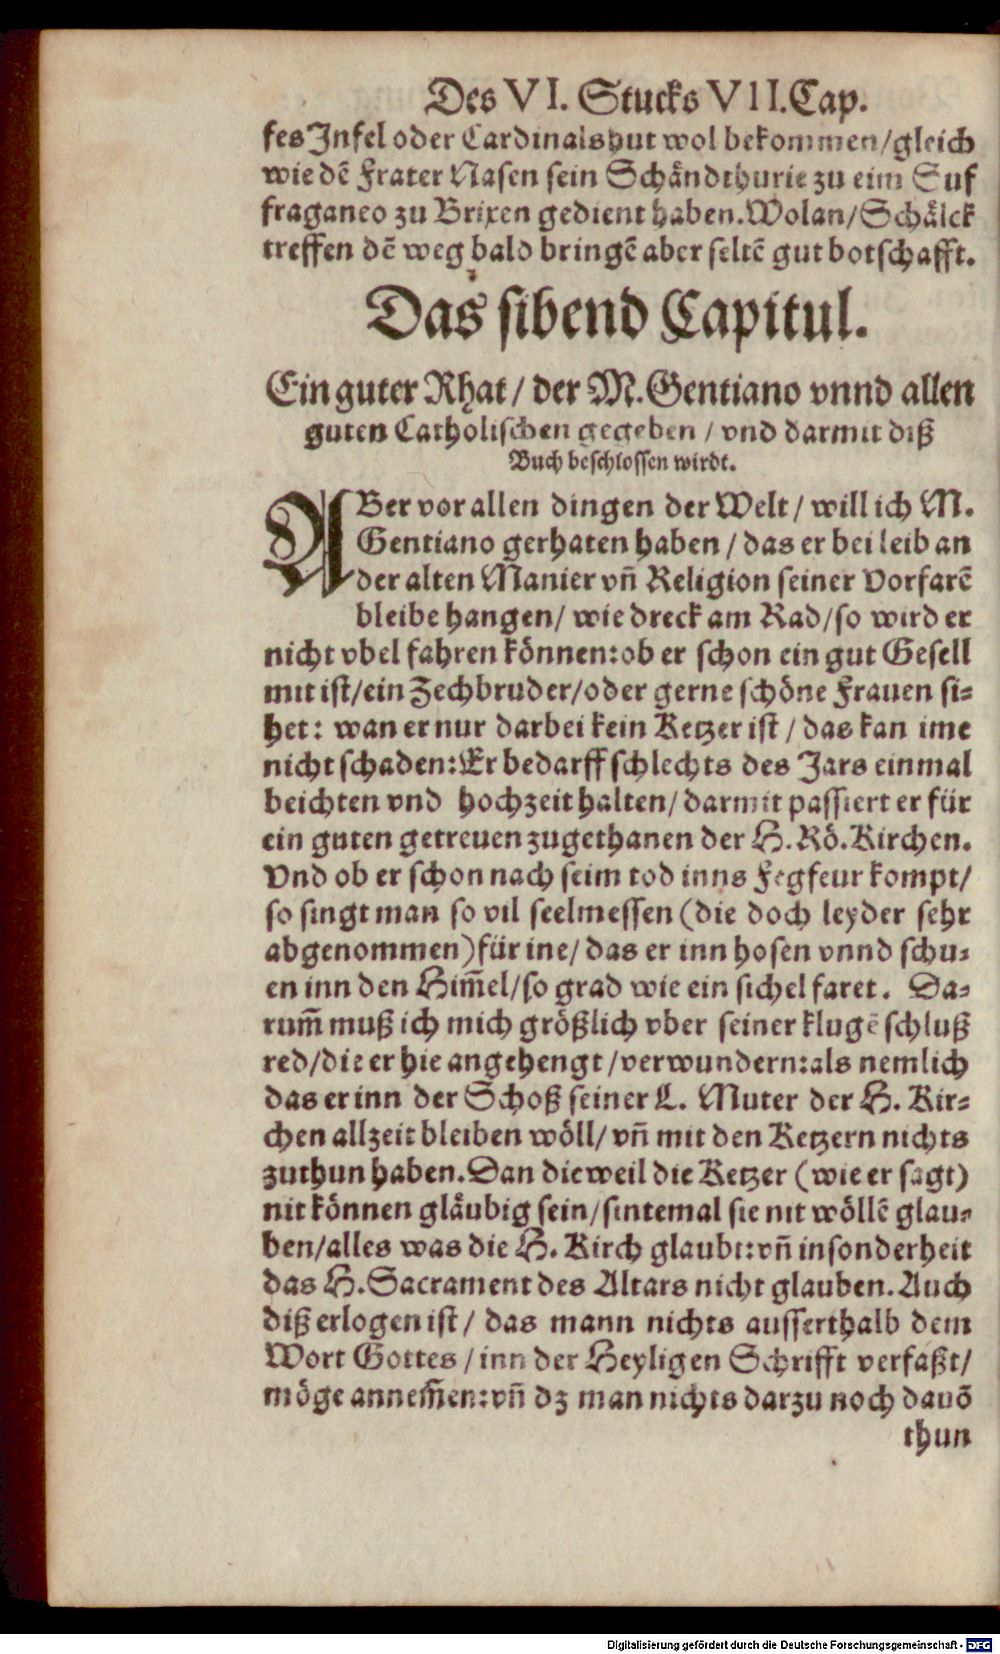 Des VI. Stucks VII.Cap.
fes Infel oder Cardinalshut wol bekommen/gleich
wie dẽ Frater Nasen sein Schändthurie zu eim Suf
fraganeo zu Brixen gedient haben. Wolan/Schälck
treffen dẽ weg bald bringẽ aber seltẽ gut botschafft.
Das sibend Capitul.
Ein guter Rhat/ der M. Gentiano vnnd allen
guten Catholischen gegeben / vnd darmit diß
Buch beschlossen wirdt.
ABer vor allen dingen der Welt/ will ich M.
Gentiano gerhaten haben / das er bei leib an
der alten Manier vñ Religion seiner Vorfarẽ
bleibe hangen/ wie dreck am Rad/so wird er
nicht vbel fahren können:ob er schon ein gut Gesell
mit ist/ein Zechbruder/oder gerne schöne Frauen si-
het: wan er nur darbei kein Ketzer ist / das kan ime
nicht schaden:Er bedarff schlechts des Jars einmal
beichten vnd hochzeit halten/ darmit passiert er für
ein guten getreuen zugethanen der H. Rö. Kirchen.
Vnd ob er schon nach seim tod inns Fegfeur kompt/
so singt man so vil seelmessen (die doch leyder sehr
abgenommen) für ine/ das er inn hosen vnnd schu-
en inn den Him̃el/so grad wie ein sichel faret. Da-
rum̃ muß ich mich größlich vber seiner klugẽ schluß
red/die er hie angehengt /verwundern:als nemlich
das er inn der Schoß seiner L. Muter der H. Kir-
chen allzeit bleiben wöll/ vñ mit den Ketzern nichts
zuthun haben. Dan dieweil die Ketzer (wie er sagt)
nit können gläubig sein/sintemal sie nit wöllẽ glau-
ben/alles was die H. Kirch glaubt:vñ insonderheit
das H. Sacrament des Altars nicht glauben. Auch
diß erlogen ist/ das mann nichts ausserthalb dem
Wort Gottes /inn der Heyligen Schrifft verfaßt/
möge annem̃en:vñ dz man nichts darzu noch dauõ
thun
Digitalisierung gefördert durch die Deutsche Forschungsgemeinschaft - DFG